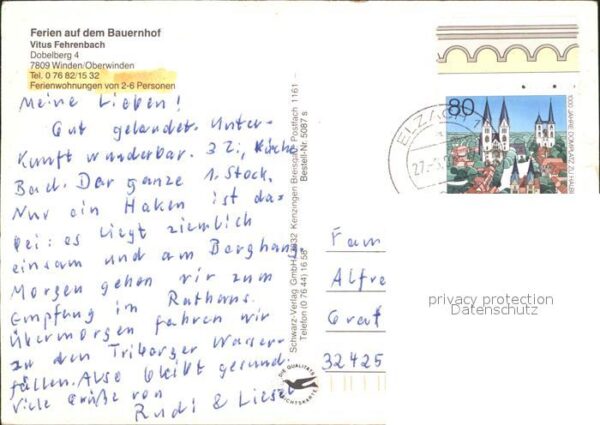 Ferien auf dem Bauernhof
Vitus Fehrenbach
Dobelberg 4
7809 Winden/Oberwinden
Tel. 0 76 82/15 32
Ferienwohnungen von 2-6 Personen
Meine Lieben!
Gut gelandet. Unter-
kunft wunderbar. 3 Zi, Küche
Bad. Der ganze 1. Stock.
Nur ein Haken ist da-
bei: es liegt ziemlich
einsam und am Berghang.
Morgen gehen wir zum
Empfang im Rathaus.
Übermorgen fahren wir
zu den Triberger Wasser-
fällen. Also bleibt gesund.
Viele Grüße von
Rudi & Liesel
Schwarz-Verlag GmbH 7832 Kenzingen Breisgau Postfach 1161
Telefon (0 76 44) 16 58
Bestell-Nr. 5087 s
DIE QUALITÄTS
ANSICHTSKARTE
80
1000 JAHRE DOMPLATZ ZU
ELZACH
27.
Fam
Alfre
Graf
32425
privacy protection
Datenschutz